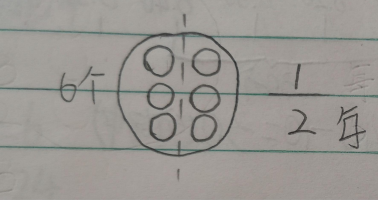 6个
1/2 每